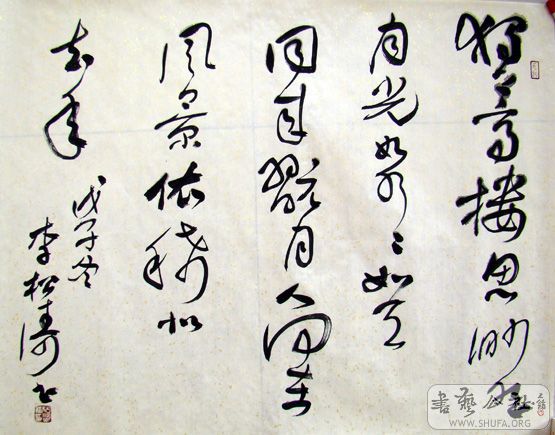 獨上高樓思渺然
月光如水〻如天
同來翫月人何在
風景依稀似
去年
戊子冬
李松濤书
書藝公社
WWW.SHUFA.ORG